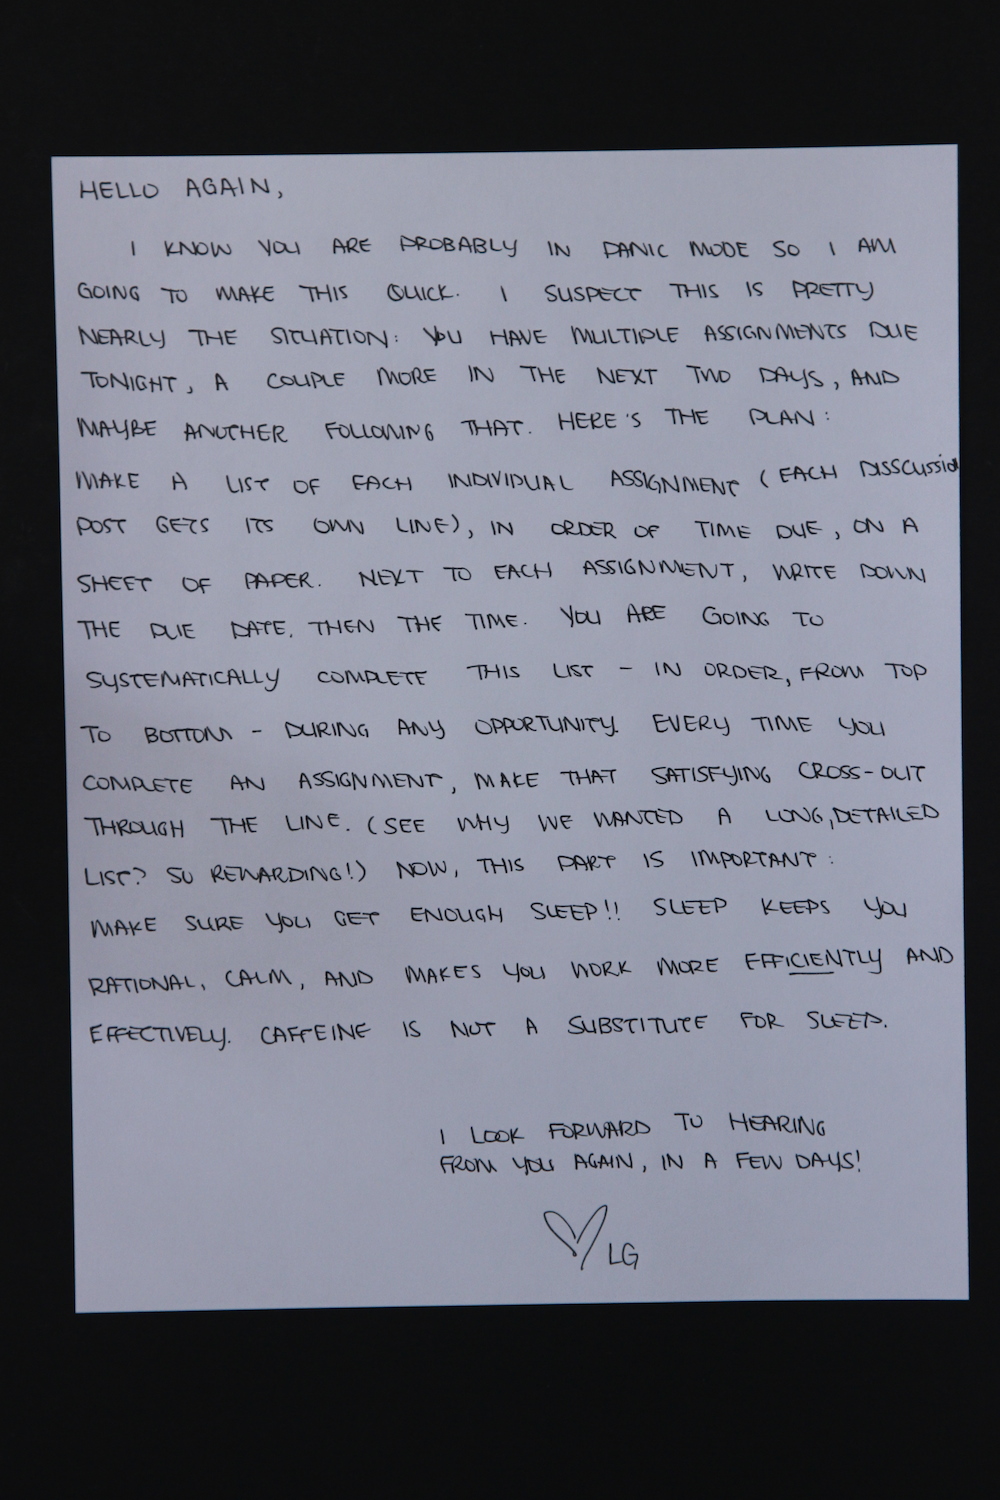 HELLO AGAIN,
I KNOW YOU ARE PROBABLY IN PANIC MODE SO I AM
GOING TO MAKE THIS QUICK. I SUSPECT THIS IS PRETTY
NEARLY THE SITUATION: YOU HAVE MULTIPLE ASSIGNMENTS DUE
TONIGHT, A COUPLE MORE IN THE NEXT TWO DAYS, AND
MAYBE ANOTHER FOLLOWING THAT. HERE'S THE PLAN:
MAKE A LIST OF EACH INDIVIDUAL ASSIGNMENT (EACH DISSCUSSION
POST GETS ITS OWN LINE), IN ORDER OF TIME DUE, ON A
SHEET OF PAPER. NEXT TO EACH ASSIGNMENT, WRITE DOWN
THE DUE DATE, THEN THE TIME. YOU ARE GOING TO
SYSTEMATICALLY COMPLETE THIS LIST - IN ORDER, FROM TOP
TO BOTTOM - DURING ANY OPPORTUNITY. EVERY TIME YOU
COMPLETE AN ASSIGNMENT, MAKE THAT SATISFYING CROSS-OUT
THROUGH THE LINE. (SEE WHY WE WANTED A LONG, DETAILED
LIST? SO REWARDING!) NOW, THIS PART IS IMPORTANT:
MAKE SURE YOU GET ENOUGH SLEEP!! SLEEP KEEPS YOU
RATIONAL, CALM, AND MAKES YOU WORK MORE EFFICIENTLY AND
EFFECTIVELY. CAFFEINE IS NOT A SUBSTITUTE FOR SLEEP.
I LOOK FORWARD TO HEARING
FROM YOU AGAIN, IN A FEW DAYS!
LG